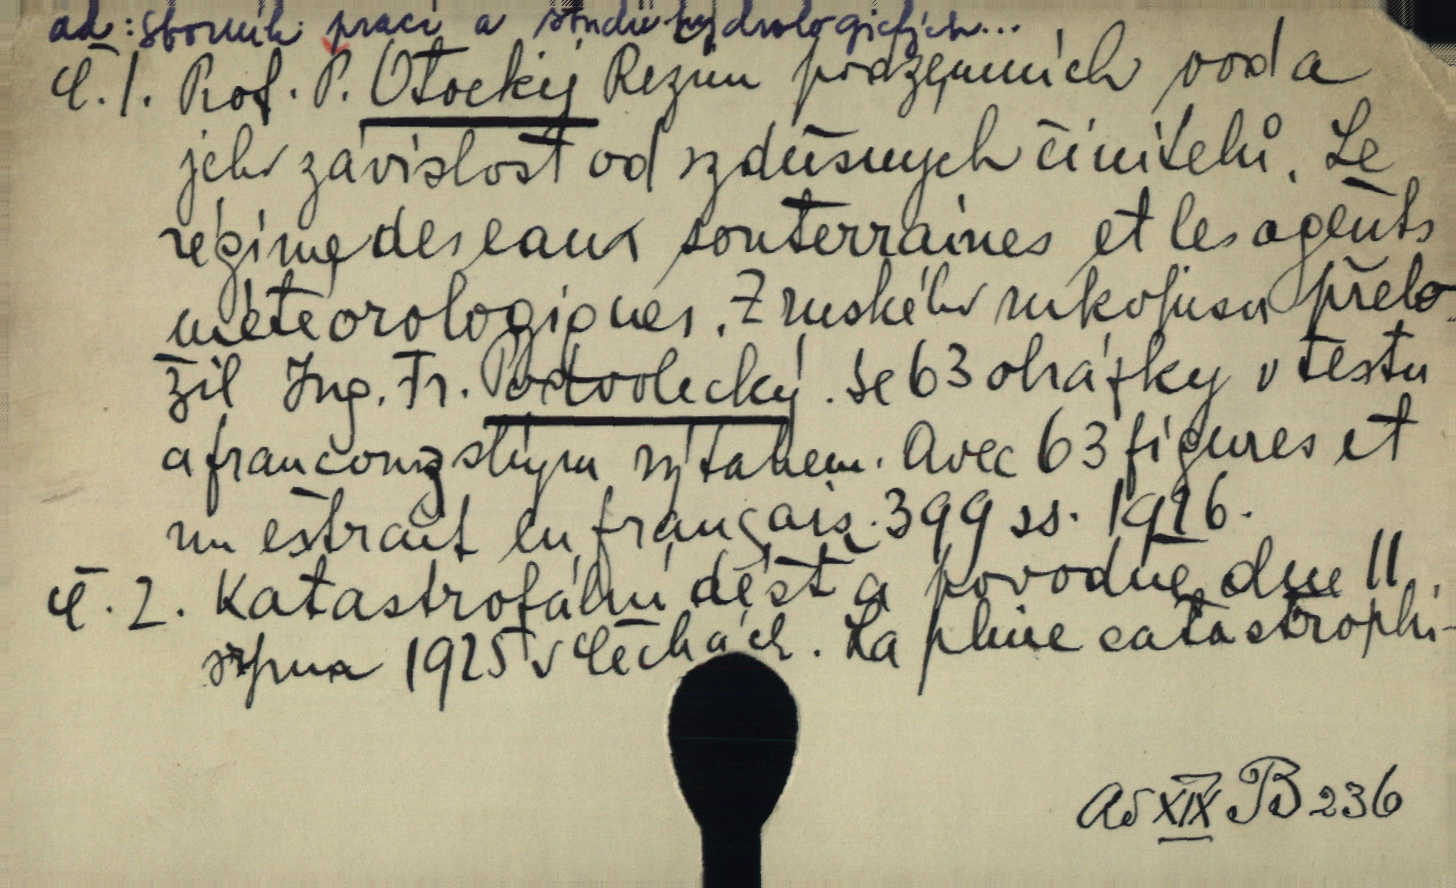 ad: Sborník prací a studií hydrologických...
Č. 1. Prof. P. Otockij Režim podzemních vod a
jich závislost od vzdušných činitelů. Le
régime des eaux souterraines et les agents
météorologiques. Z ruského rukopisu přelo-
žil Ing. Fr. Podvolecký. Se 63 obrázky v textu
a francouzským výtahem. Avec 63 figures et
un extrait en français. 399 ss. 1926.
Č. 2. Katastrofální déšť a povodně dne 11.
srpna 1925 v Čechách. La pluie catastrophi-
Ad XIX B 236